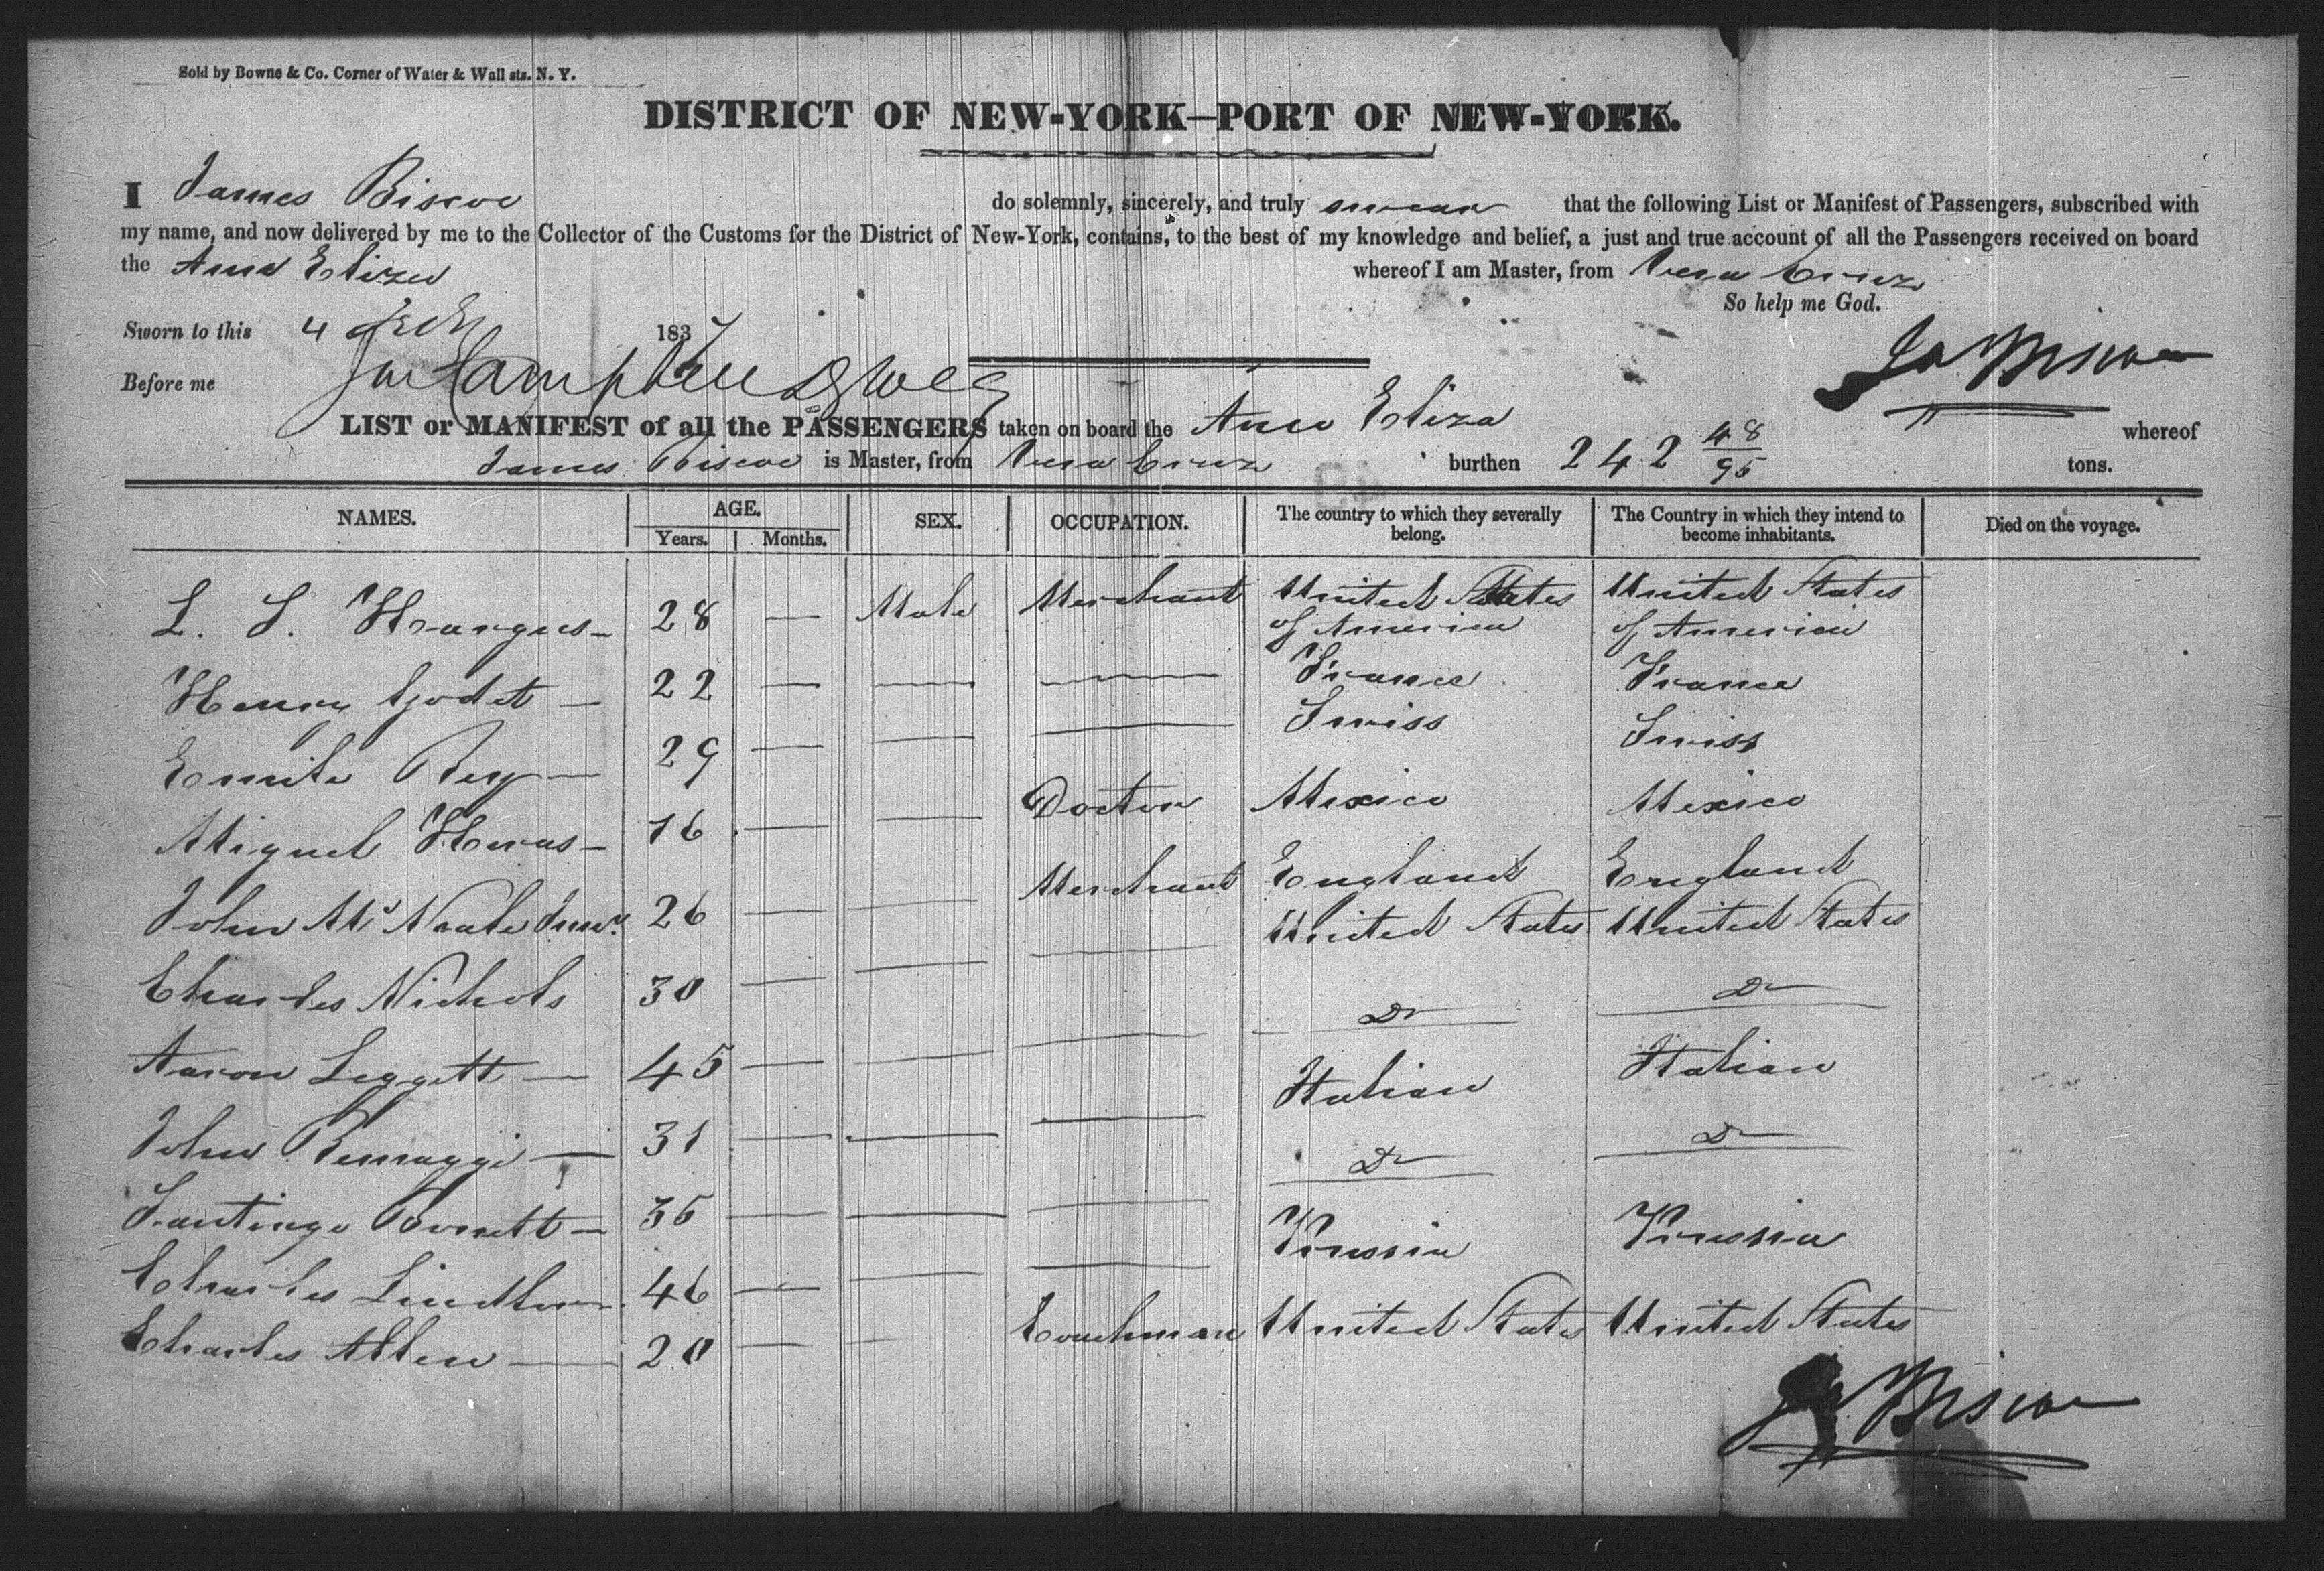 Sold by Bowne & Co. Corner of Water & Wall sts. N. Y.
DISTRICT OF NEW-YORK—PORT OF NEW-YORK.
I James Biscoe do solemnly, sincerely, and truly swear that the following List or Manifest of Passengers, subscribed with
my name, and now delivered by me to the Collector of the Customs for the District of New-York, contains, to the best of my knowledge and belief, a just and true account of all the Passengers received on board
the Ann Eliza whereof I am Master, from Vera Cruz
So help me God.
Sworn to this 4 Feb 1837
Jas Biscoe
Before me Campbell
LIST or MANIFEST of all the PASSENGERS taken on board the Ann Eliza whereof
James Biscoe is Master, from Vera Cruz burthen 242 48/95 tons.
NAMES. AGE. SEX. OCCUPATION. The country to which they severally belong. The Country in which they intend to become inhabitants. Died on the voyage.
Years. Months.
L. S. Hargus — 28 — Male Merchant United States of America United States of America
Henry Godet — 22 — — — France France
Emile Rey — 29 — — — Swiss Swiss
Miguel Heras — 16 — — Doctor Mexico Mexico
John Mc Neale Junr 26 — — Merchant England England
Charles Nichols 30 — — — United States United States
Aaron Leggett — 45 — — — Do Do
John Bemaggi — 31 — — — Italian Italian
Santiago — 35 — — — Do Do
Charles 46 — — — Prussia Prussia
Charles Allen — 20 — — Coachman United States United States
Jas Biscoe